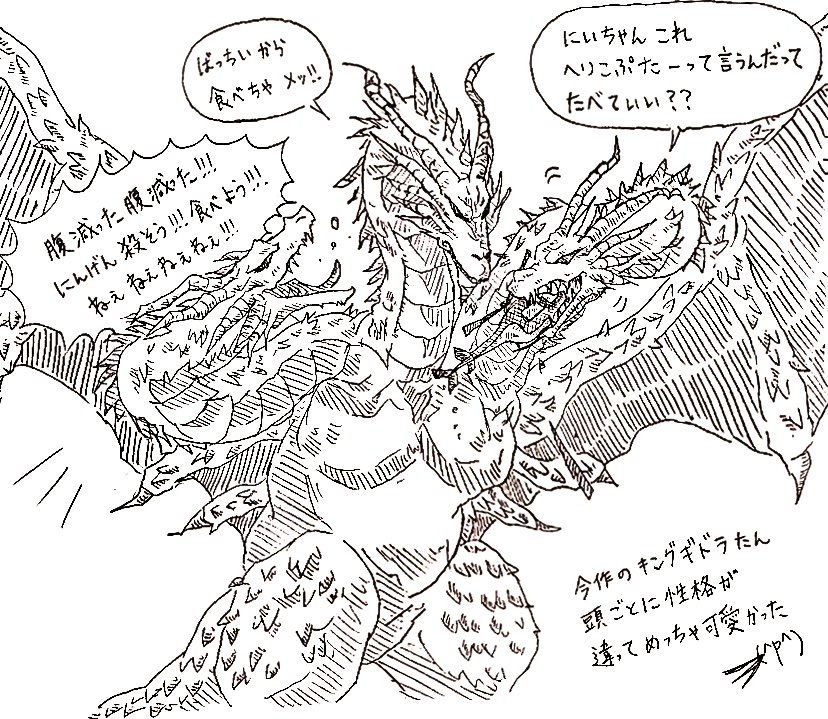 にいちゃん これ
へりこぷたーって言うんだって
たべていい??
ばっちいから
食べちゃ メッ!!
腹減った腹減った!!!
にんげん 殺そう!!! 食べよう!!!
ねぇ ねぇ ねぇ ねぇ!!!
今作の キングギドラたん
頭ごとに 性格が
違って めっちゃ可愛かった